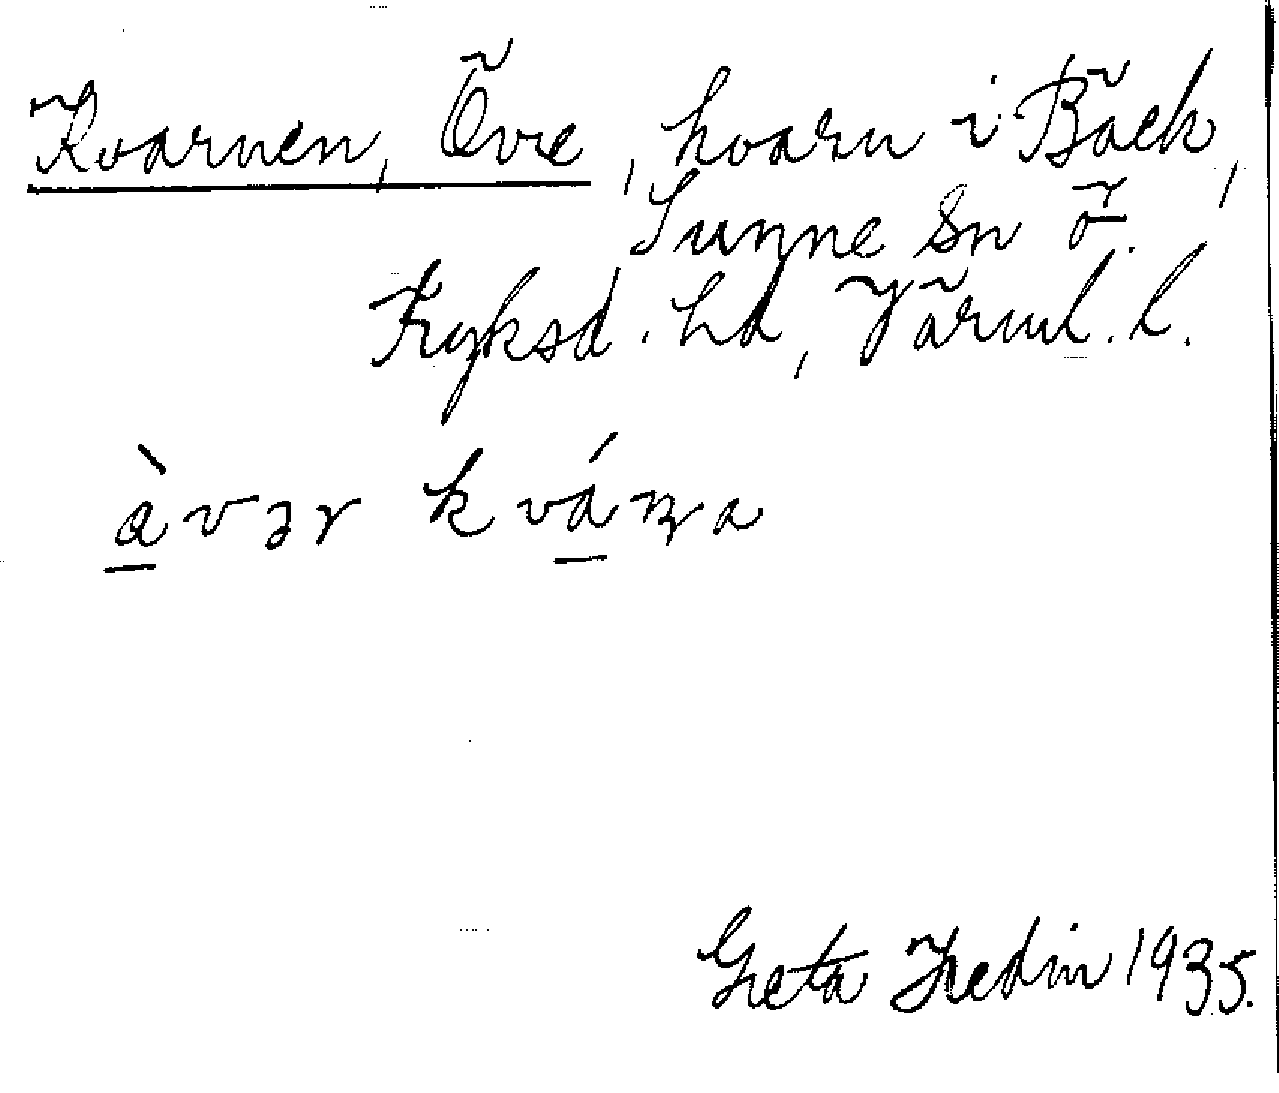 Kvarnen, Övre, kvarn i Bäck,
Sunne sn ö.
Fryksd. hd, Värml. l.
àvər kváṇa
Greta Hedin 1935.